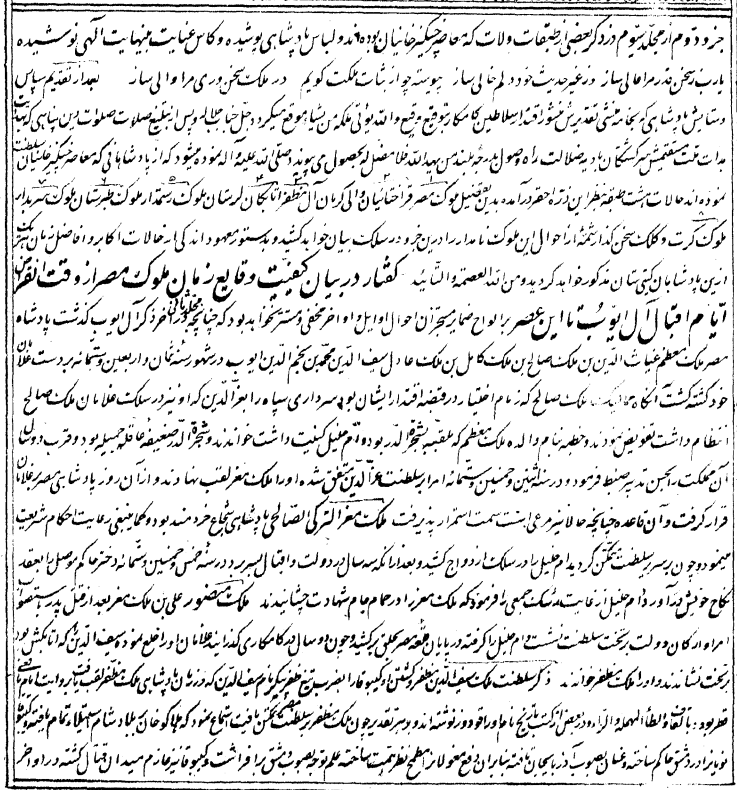 جزو دوم از مجلد سیوم در ذکر بعضی از طبقات ولات که معاصر چنگیز خانیان بوده‌اند و لباس پادشاهی پوشیده و کاس عنایت بی‌نهایت الهی نوشیده
یارب سخن قدر مرا عالی ساز در غیر حدیث خود دلم خالی ساز پیوسته چو از ثبات ملکت گویم در ملک سخنوری مرا والی ساز بعد از تقدیم سپاس
و ستایش پادشاهی که بخامه منشی تقدیرش منشور اقتدار سلاطین کامکار بتوقیع وقیع والله یؤتی ملکه من یشاء موقع میگردد
هدایت ملت مستقیمش سرگشتگان بادیه ضلالت راه وصول بدرجه بلند من یهد الله فلا مضل له بحصول می‌پیوندد صلی الله علیه و آله نموده میشود که از پادشاهانی که معاصر چنگیز خانیان سلطنت
نموده‌اند حالات هشت طبقه بنظر این ذره احقر درآمده بدین تفصیل ملوک مصر قراختائیان والی کرمان آل مظفر اتابکان لرستان ملوک رستمدار ملوک طبرستان ملوک سربدار
ملوک کرت و کلک سخن گذار شمهٔ از احوال این ملوک نامدار را درین جزو در سلک بیان خواهد کشید و بدستور معهود اندکی از حالات اکابر و افاضل زمان
ازین پادشاهان گیتی ستان مذکور خواهد گردید و من الله العصمة والتأیید گفتار در بیان کیفیت وقایع زمان ملوک مصر از وقت انقراض
ایام اقبال آل ایوب تا این عصر بر الواح ضمایر متبحران احوال اوایل و اواخر مخفی و مستتر نخواهد بود که چنانچه در آخر ذکر آل ایوب گذشت پادشاه
مصر ملک معظم غیاث الدین بن ملک صالح بن ملک کامل بن ملک عادل سیف الدین محمد بن نجم الدین ایوب در شهور سنه ثمان و اربعین و ستمائه بر دست غلامان
خود کشته گشت آنگاه ممالیک ملک صالح که زمام اختیار در قبضه اقتدار ایشان بود سرداری سپاه را بعز الدین که او نیز در سلک غلامان ملک صالح
انتظام داشت تفویض نمودند و خطبه بنام والده ملک معظم که ملقبه بشجر الدر بود و ام خلیل کنیت داشت خواندند و شجر الدر ضعیفه عاقله جمیله بود و قرب دو سال
آن مملکت را بحسن تدبیر ضبط فرمود و در سنه اثنین و خمسین و ستمائه امرا بر سلطنت عز الدین متفق شده او را ملک معز لقب نهادند و از آن روز پادشاهی مصر بر غلامان
قرار گرفت و آن قاعده چنانچه حالا نیز مرعی است سمت استمرار پذیرفت ملک معز الترکی الصالحی پادشاهی شجاع خردمند بود و کما ینبغی رعایت احکام شریعت
مینمود و چون بر سریر سلطنت متمکن گردید ام خلیل را در سلک ازدواج کشید و بعد از آنکه سه سال در دولت و اقبال بسر برد در سنه خمس و خمسین و ستمائه دختر حاکم موصل را بعقد
نکاح خویش درآورد و ام خلیل از غایت رشک جمعی را فرمود که ملک معز را در حمام جام شهادت چشانیدند ملک منصور علی بن ملک معز بعد از قتل پدر
امرا و ارکان دولت بر تخت سلطنت نشست و ام خلیل را گرفته در پایان قلعه مصر بحلق برکشید و چون دو سال در کامکاری گذرانید غلامان او را خلع نموده سیف الدین را که اتابکش بود
بر تخت نشاندند و او را ملک مظفر خواندند ذکر سلطنت ملک سیف الدین مظفر و کشتن او کیبوقا را بضرب تیغ ظفر پیکر نام سیف الدین که در زمان پادشاهی ملک مظفر لقب یافت
قطز بود بالقاف و الطاء المهمله و الزاء و در بعضی از نسخ تاریخ نام او را قودوز نوشته‌اند و بهر تقدیر چون ملک مظفر بر سلطنت تمکن یافت استماع نمود که هلاکو خان بر بلاد شام استیلاء تمام یافته
نویانرا در دمشق حاکم ساخته و عنان بصوب آذربایجان تافته بنابر آن دفع مغولان را مطمح نظر همت ساخته علم توجه بصوب دمشق برافراشت و کیبوقا نیز عازم میدان قتال گشته در اواخر